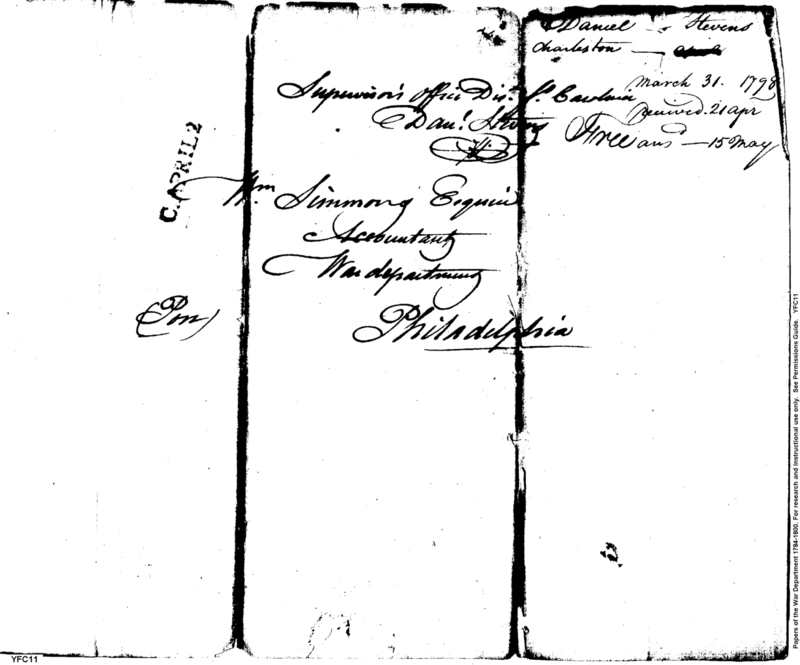 Daniel Stevens
Charleston —
March 31. 1798
received. 21 apr
ansd — 15 May
Supervisor's office Dist. So. Carolina
Danl. Stevens
Free
C. APRIL 2
Wm. Simmons Esquire
Accountant
War department
Philadelphia
YFC11
Papers of the War Department 1784-1800. For research and instructional use only. See Permissions Guide. YFC11